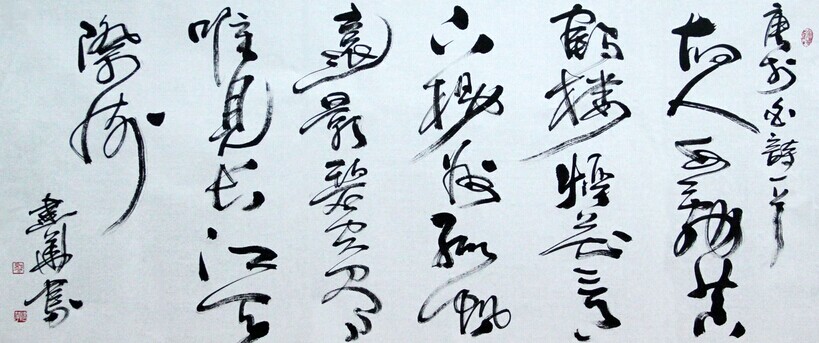 唐李白詩一首
故人西辭黃
鶴樓煙花三月
下揚州孤帆
遠影碧空尽
唯見長江天
際流
建華書